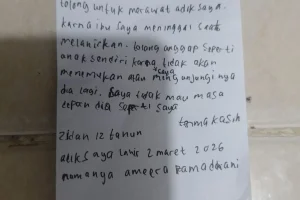 tolong untuk merawat adik saya.
karna ibu saya meninggal saat
melahirkan. tolong anggap seperti
anak sendiri karna tidak akan
menemukan atau saya mengunjungi nya
dia lagi. saya tidak mau masa
depan dia seperti saya
terima kasih
Zidan 12 tahun
adik saya lahir 2 maret 2026
namanya ameera ramadhani